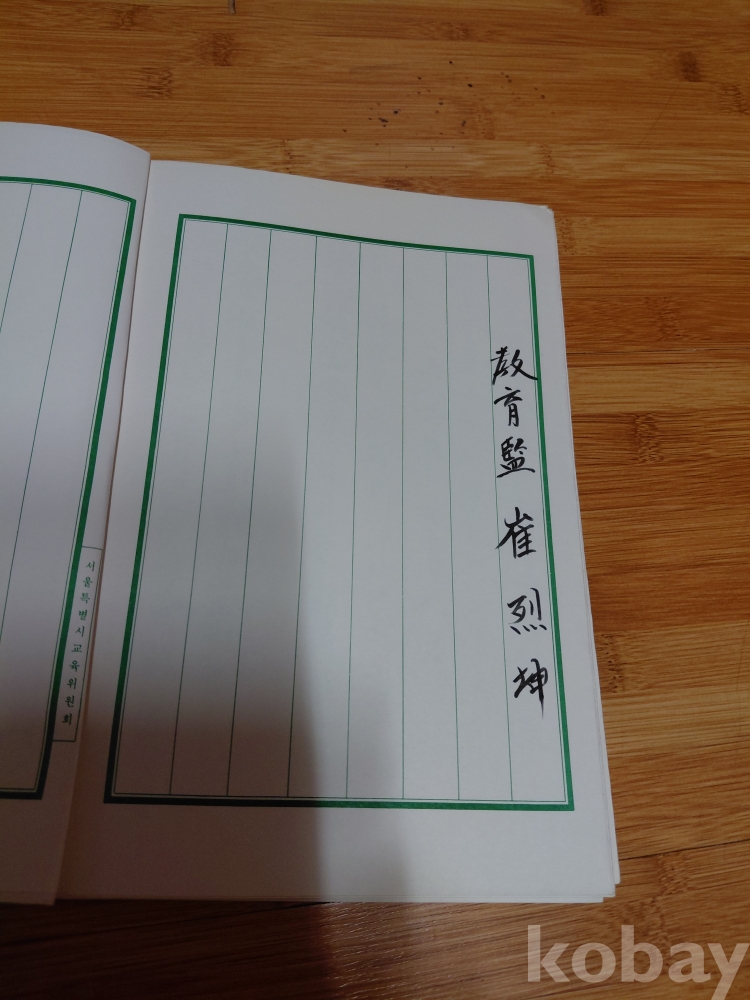 敎育監 崔烈坤
서울특별시교육위원회
kobay